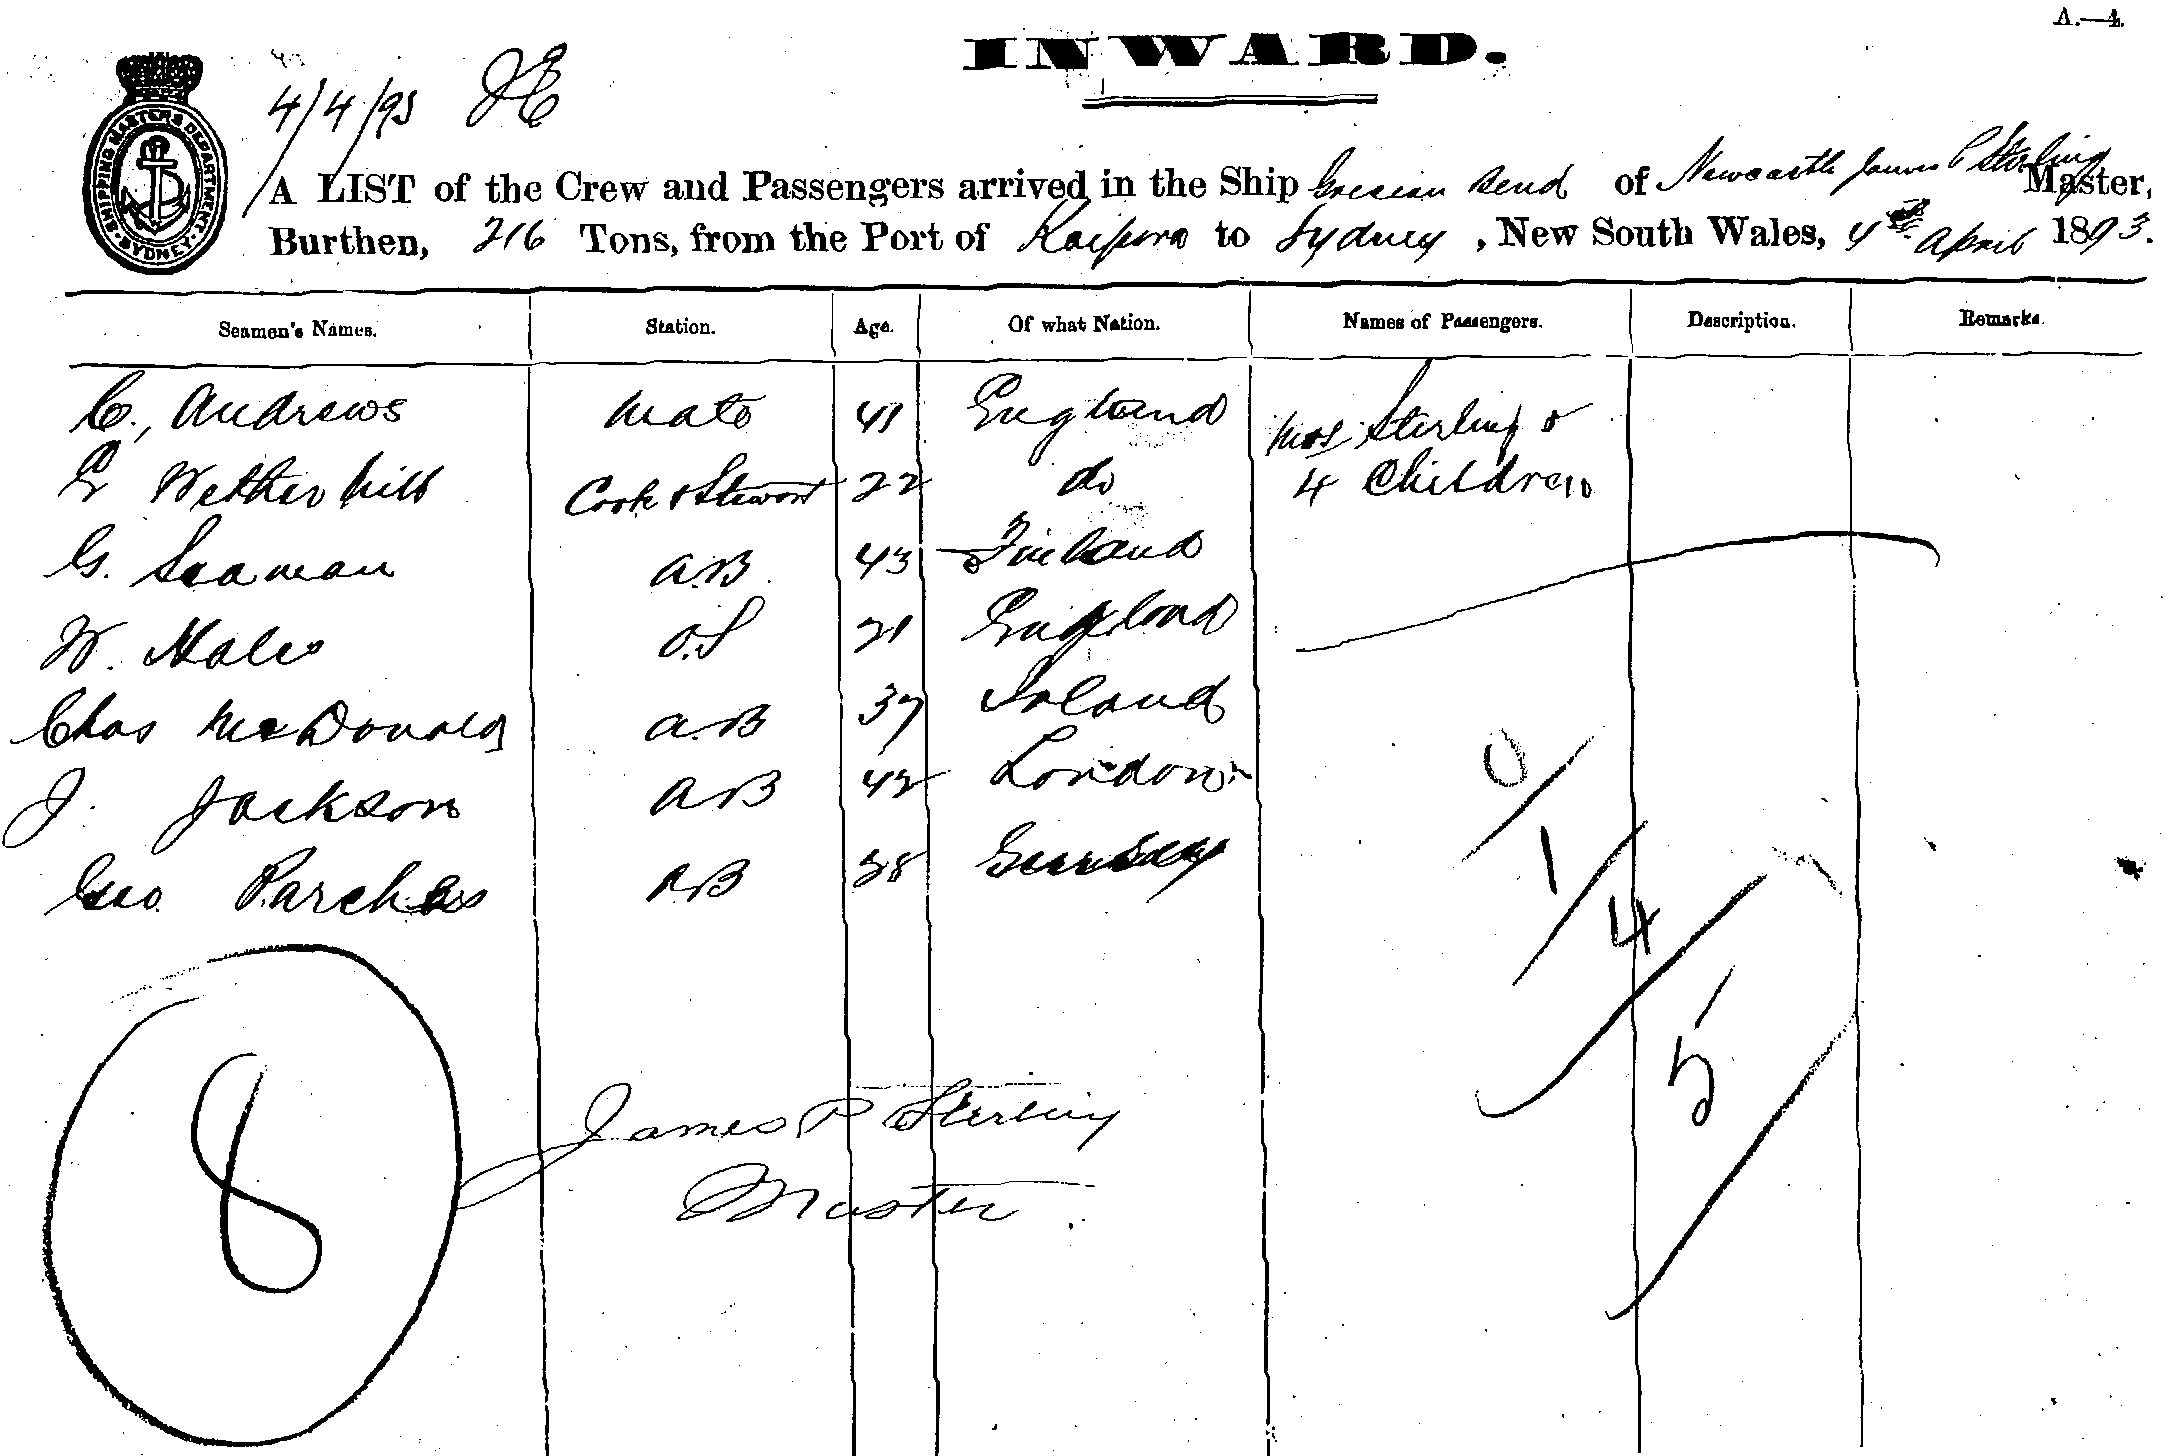 A.—4.
INWARD.
4/4/93 JE
SHIPPING MASTERS DEPARTMENT SYDNEY
A LIST of the Crew and Passengers arrived in the Ship Grecian Bend of Newcastle James P Sterling Master,
Burthen, 216 Tons, from the Port of Kaipara to Sydney, New South Wales, 4th April 1893.
Seamen's Names. Station. Age. Of what Nation. Names of Passengers. Description. Remarks.
C. Andrews Mate 41 England Mrs Sterling &
Wetherhill Cook & Steward 22 do 4 Children
G. Seaman A.B. 43 Finland
W. Hales O.S 21 England
Chas McDonald A.B 37 Ireland
J. Jackson A.B 42 London
Geo A.B 38
0/1/4/5
8
James P Sterling
Master